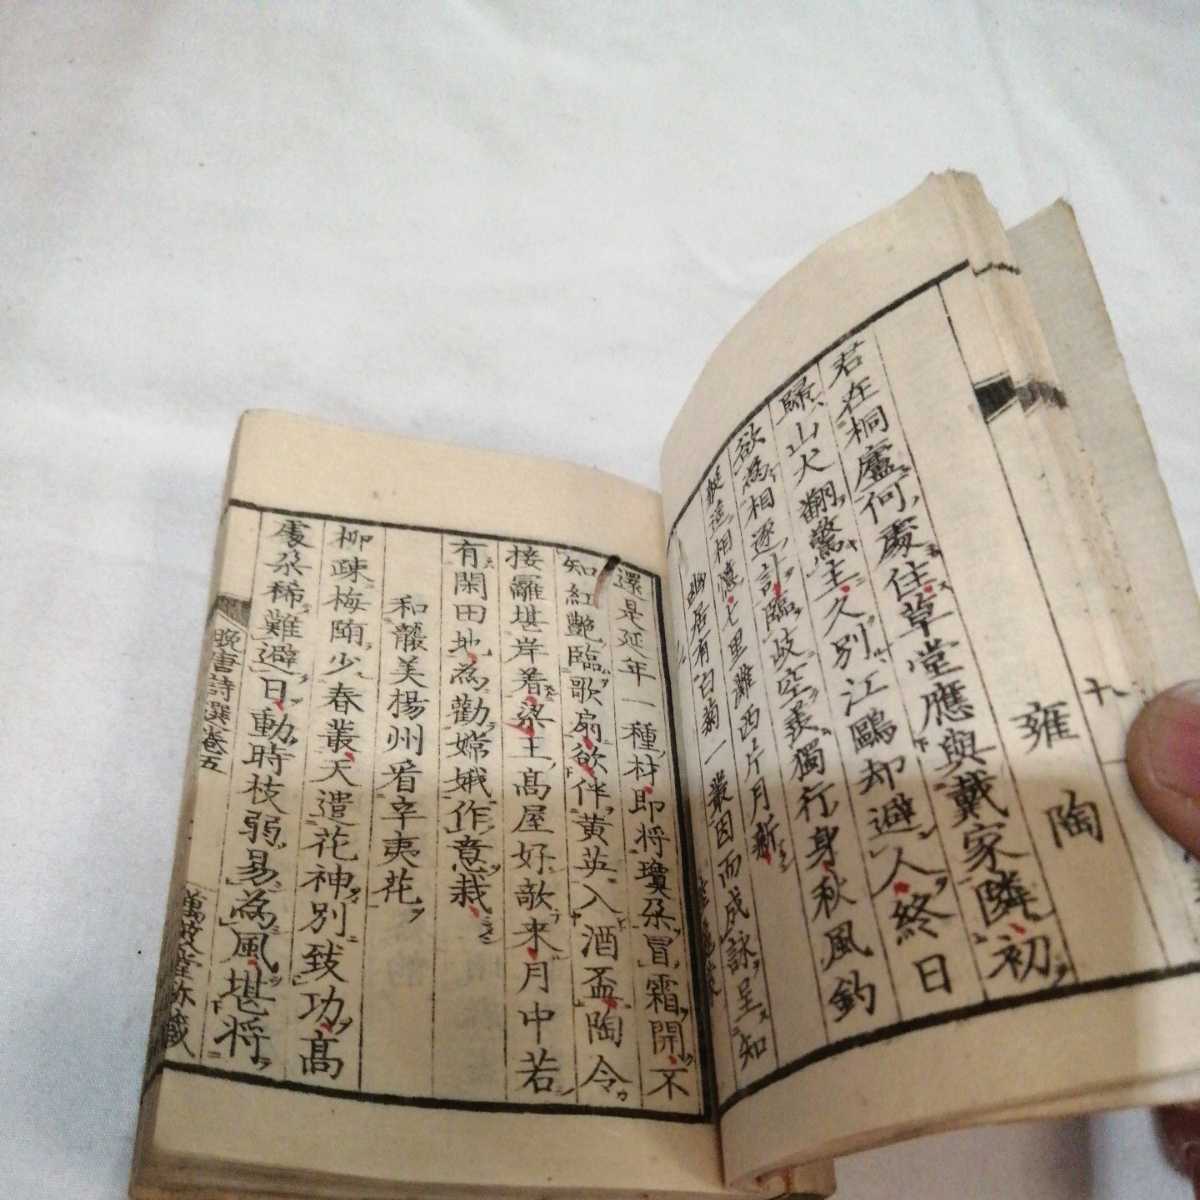 雍陶
君在桐廬何處住草堂應與戴家隣初
歸山犬翻驚主久別江鷗却避人終日
欲為相逐計臨岐空羨獨行身秋風釣
艇遙相憶七里灘西片月新
幽居有白菊一叢因而成詠呈知
還是延年一種材即將瓊朵冒霜開不
知紅艷臨歌扇欲伴黃英入酒盃陶令
接䍦堪岸着梁王高屋好欹來月中若
有閑田地為勸嫦娥作意栽
和龔美楊州看辛夷花
柳疎梅堕少春叢天遣花神別致功高
處朵稀難避日動時枝弱易為風堪將
晚唐詩選卷五